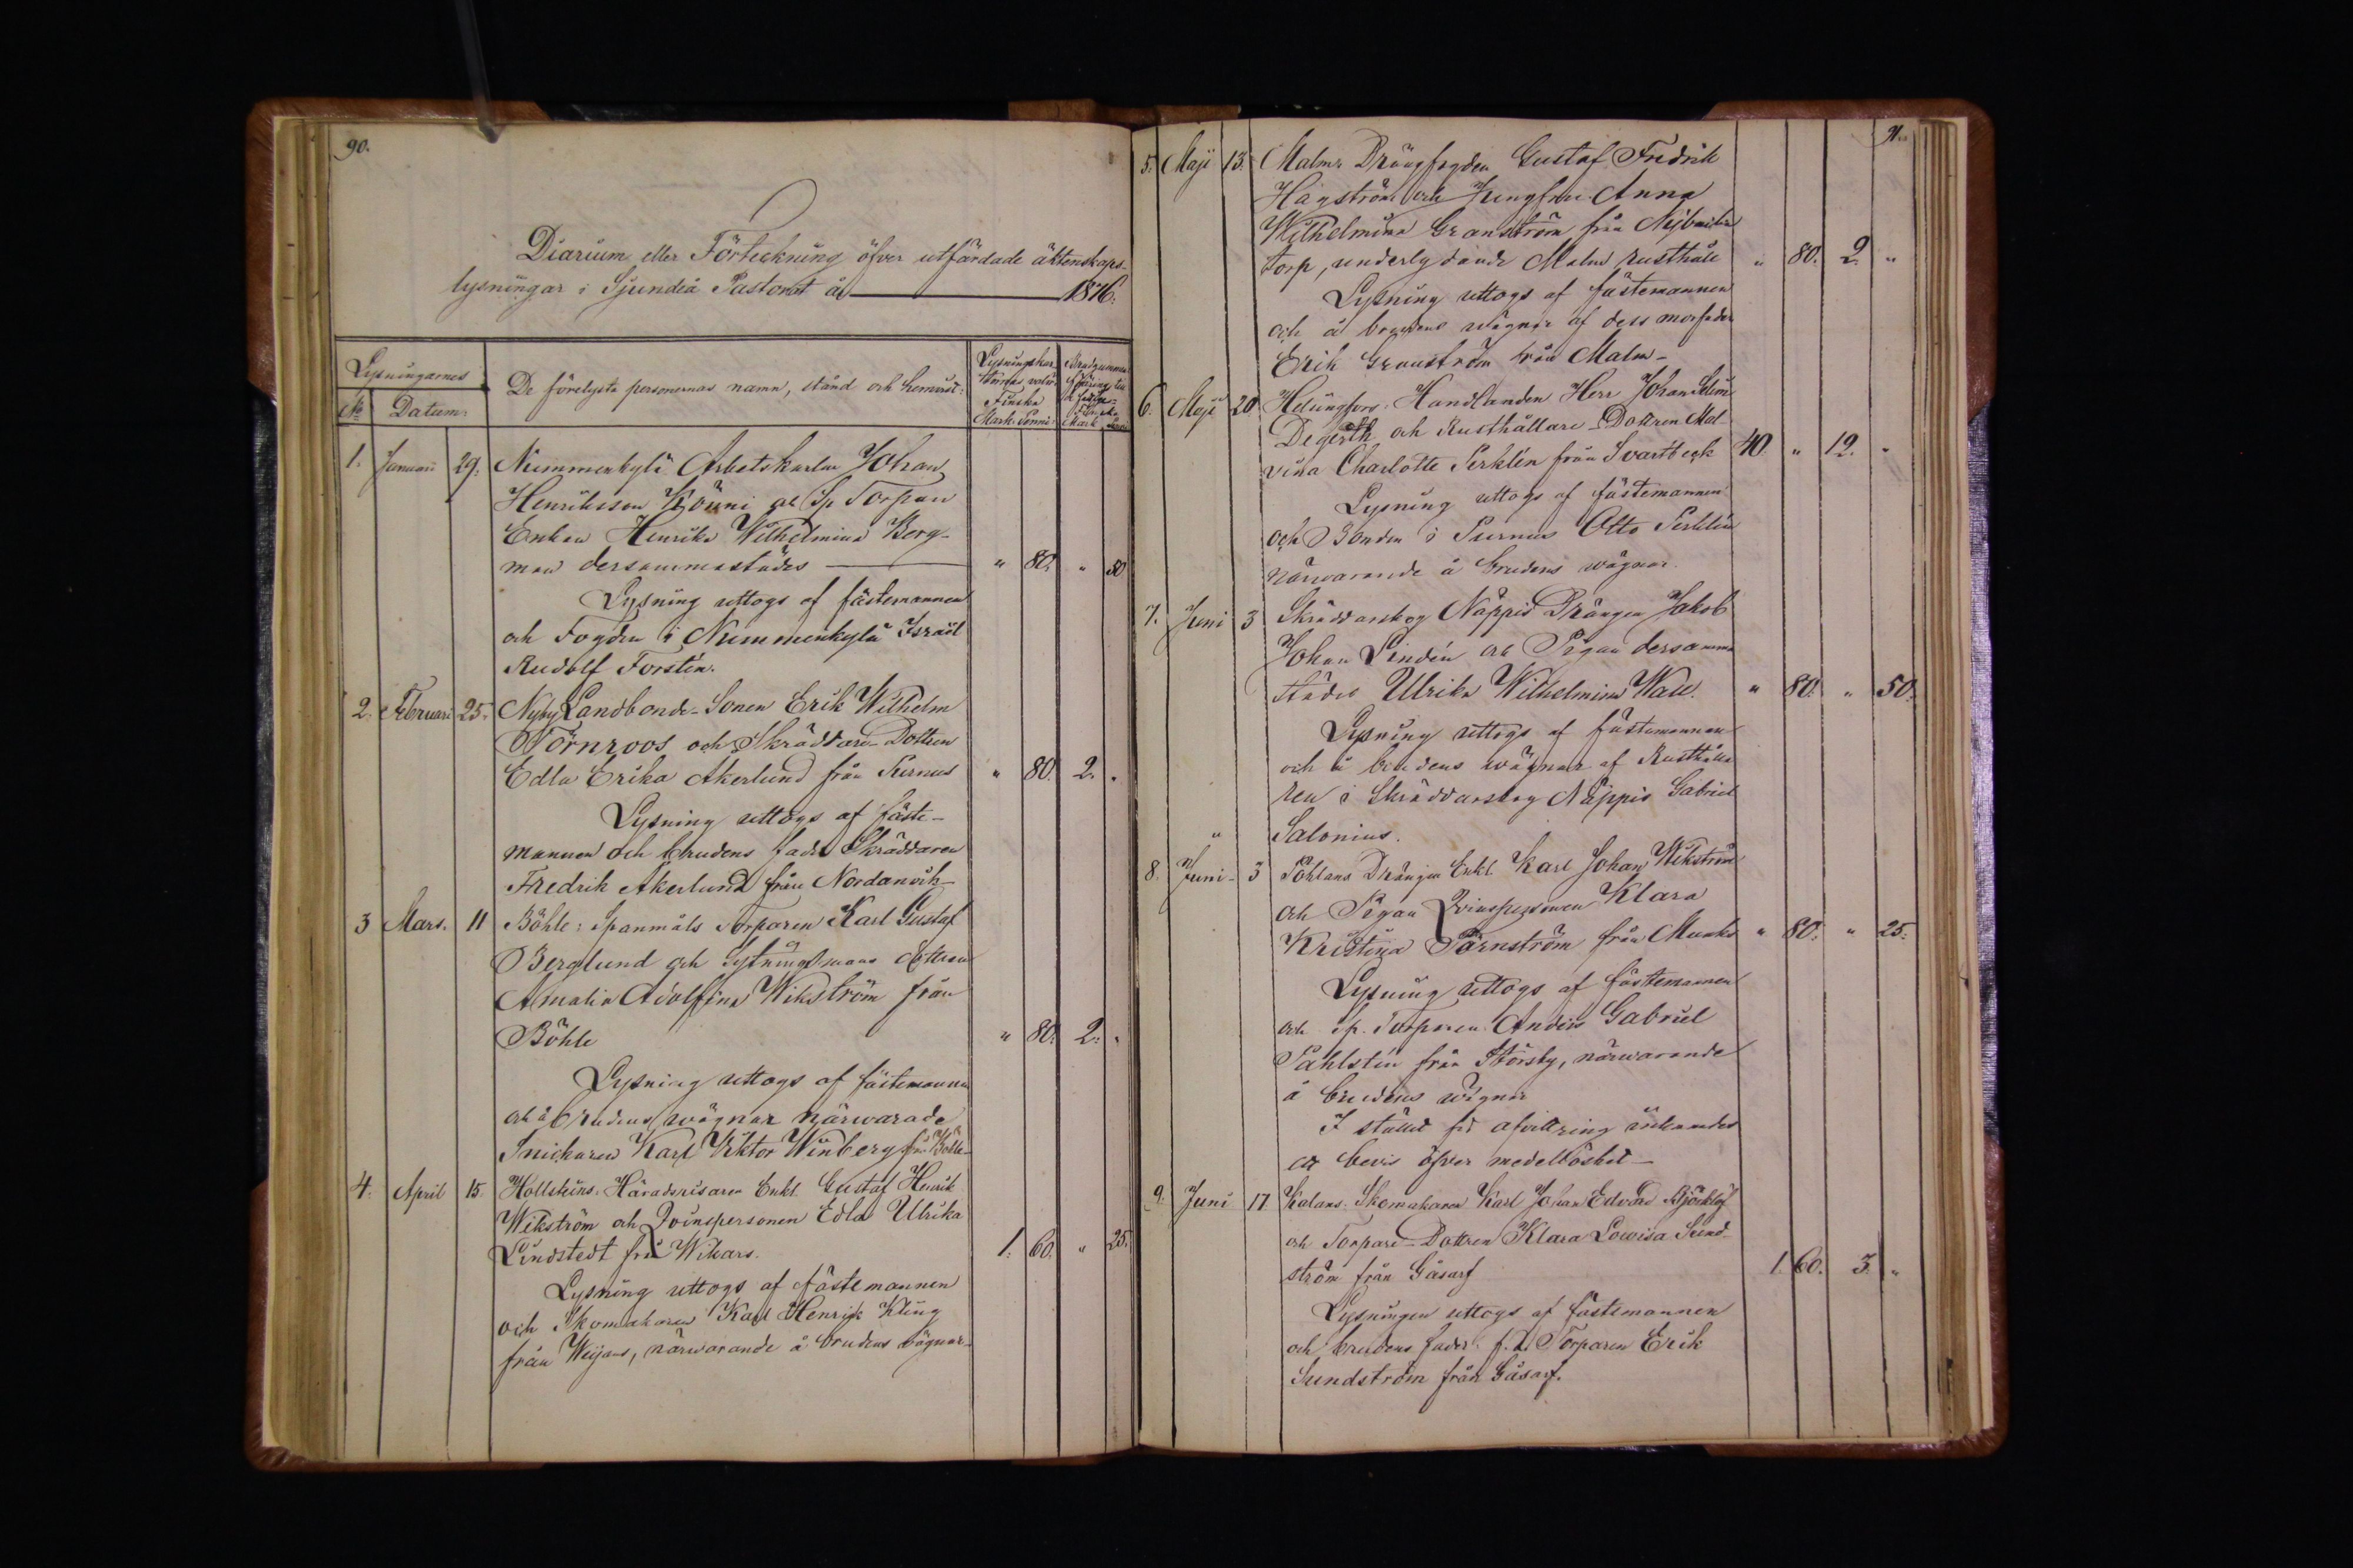 90.
Diarium eller Förteckning öfver utfärdade äktenskaps-
lysningar i Sjundeå Pastorat år 1876.
Lysningarnes
No Datum:
De förelysta personernas namn, stånd och hemvist:
Finska
Mark. Penni. Mark
1. Januari 29. Nummenkylä Arbetskarlen Johan
Henriksson Köuni och Sp. Torpare
Enkan Henrika Wilhelmina Berg-
man dersammastädes " 80. " 50
Lysning uttogs af fästemannen
och Fogden i Nummenkylä Israel
Rudolf Forstén.
2. Februari 25. Nyby Landbonde-Sonen Erik Wilhelm
Törnroos och Skräddare-Dottren
Edla Erika Åkerlund från Purnus " 80. 2. "
Lysning uttogs af fäste-
mannen och brudens fader Skräddaren
Fredrik Åkerlund från Nordanvik-
3 Mars. 11 Böhle: Spanmåls Torparen Karl Gustaf
Berglund och Sytningsmans dottren
Amalia Adolfina Wikström från
Böhle " 80. 2. "
Lysning uttogs af fästemannen
och å brudens wägnar närwarade
Snickaren Karl Viktor Winberg från Böhle-
4. April 15. Hollsteins. Häradsrisaren Enkl. Gustaf Henrik
Wikström och Qvinspersonen Edla Ulrika
Lindstedt från Wikars. 1. 60. " 25.
Lysning uttogs af fästemannen
och Skomakaren Karl Henrik Kling
från Weijans, närwarande å brudens vägnar-
91.
5. Maji 13. Malms Drängfogden Gustaf Fredrik
Hägström och Jungfru Anna
Wilhelmina Granström från
torp, underlydande Malms rusthåll " 80. 2. "
Lysning uttogs af fästemannen
och å brudens wägnar af dess morfader
Erik Granström från Malm-
6. Maji 20. Helsingfors. Handlanden Herr Johan
Degerth och Rusthållare-Dottren Mal-
vina Charlotte Perklén från Svartbeck 40. " 12. "
Lysning uttogs af fästemannen
och Bonden i Purnus Otto Perklén
närwarande å brudens wägnar.
7. Juni 3 Skräddarskog Näppis Drängen Jakob
Johan Lindén och Pigan dersamma
städes Ulrika Wilhelmina Wall. " 80. " 50.
Lysning uttogs af fästemannen
och å brudens wägnar af Rusthålla
ren i Skräddarskog Näppis Gabriel
" Salonius.
8. Juni- 3 Påhlans Drängen Enkl. Karl Johan Wikström
och Pigan Qvinspersonen Klara
Kristina Törnström från Munks " 80. " 25.
Lysning uttogs af fästemannen
och Sp. Torparen Anders Gabriel
Påhlstén från Störsby, närwarande
å brudens wägnar
I stället för afvittring
ett bevis öfver medellöshet-
9. Juni 17 Kalans. Skomakaren Karl Johan Edvard Björklöf
och Torpare-Dottren Klara Lowisa Sund-
ström från Gåsarf 1. 60. 3. "
Lysningen uttogs af fästemannen
och brudens fader f.d. Torparen Erik
Sundström från Gåsarf.